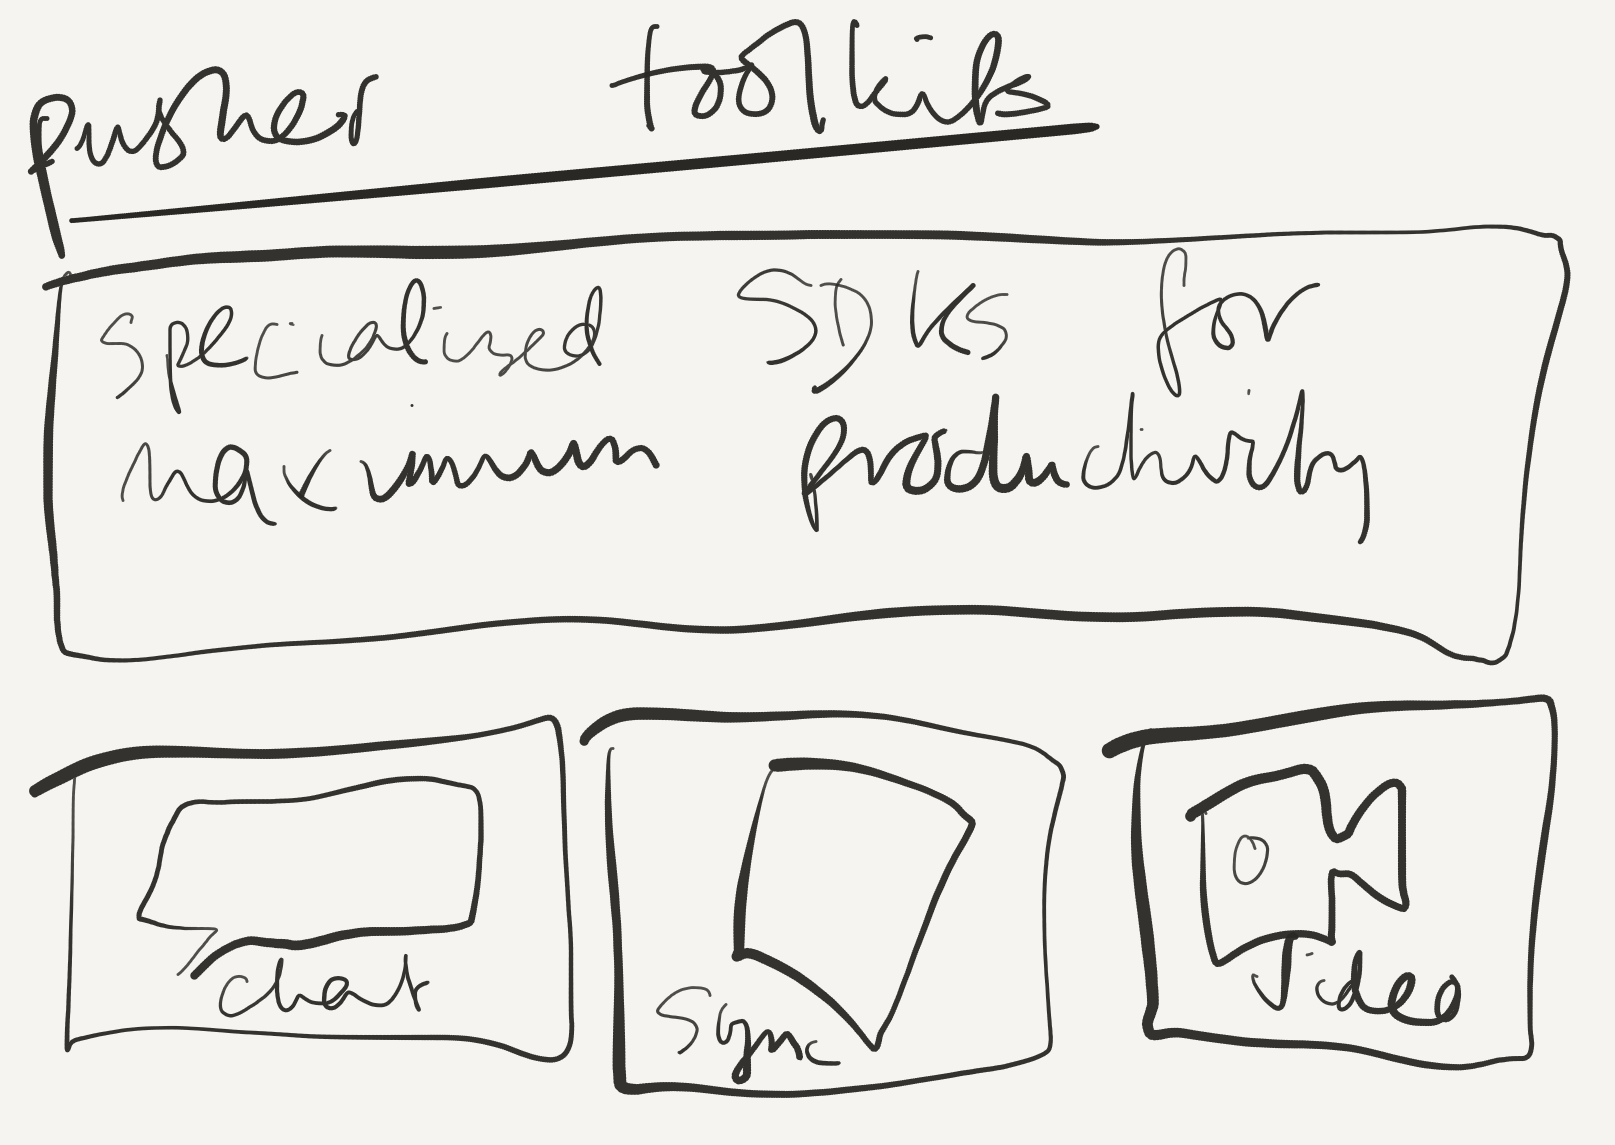 pusher toolkits
specialised SDKs for
maximum productivity
chat
sync
video